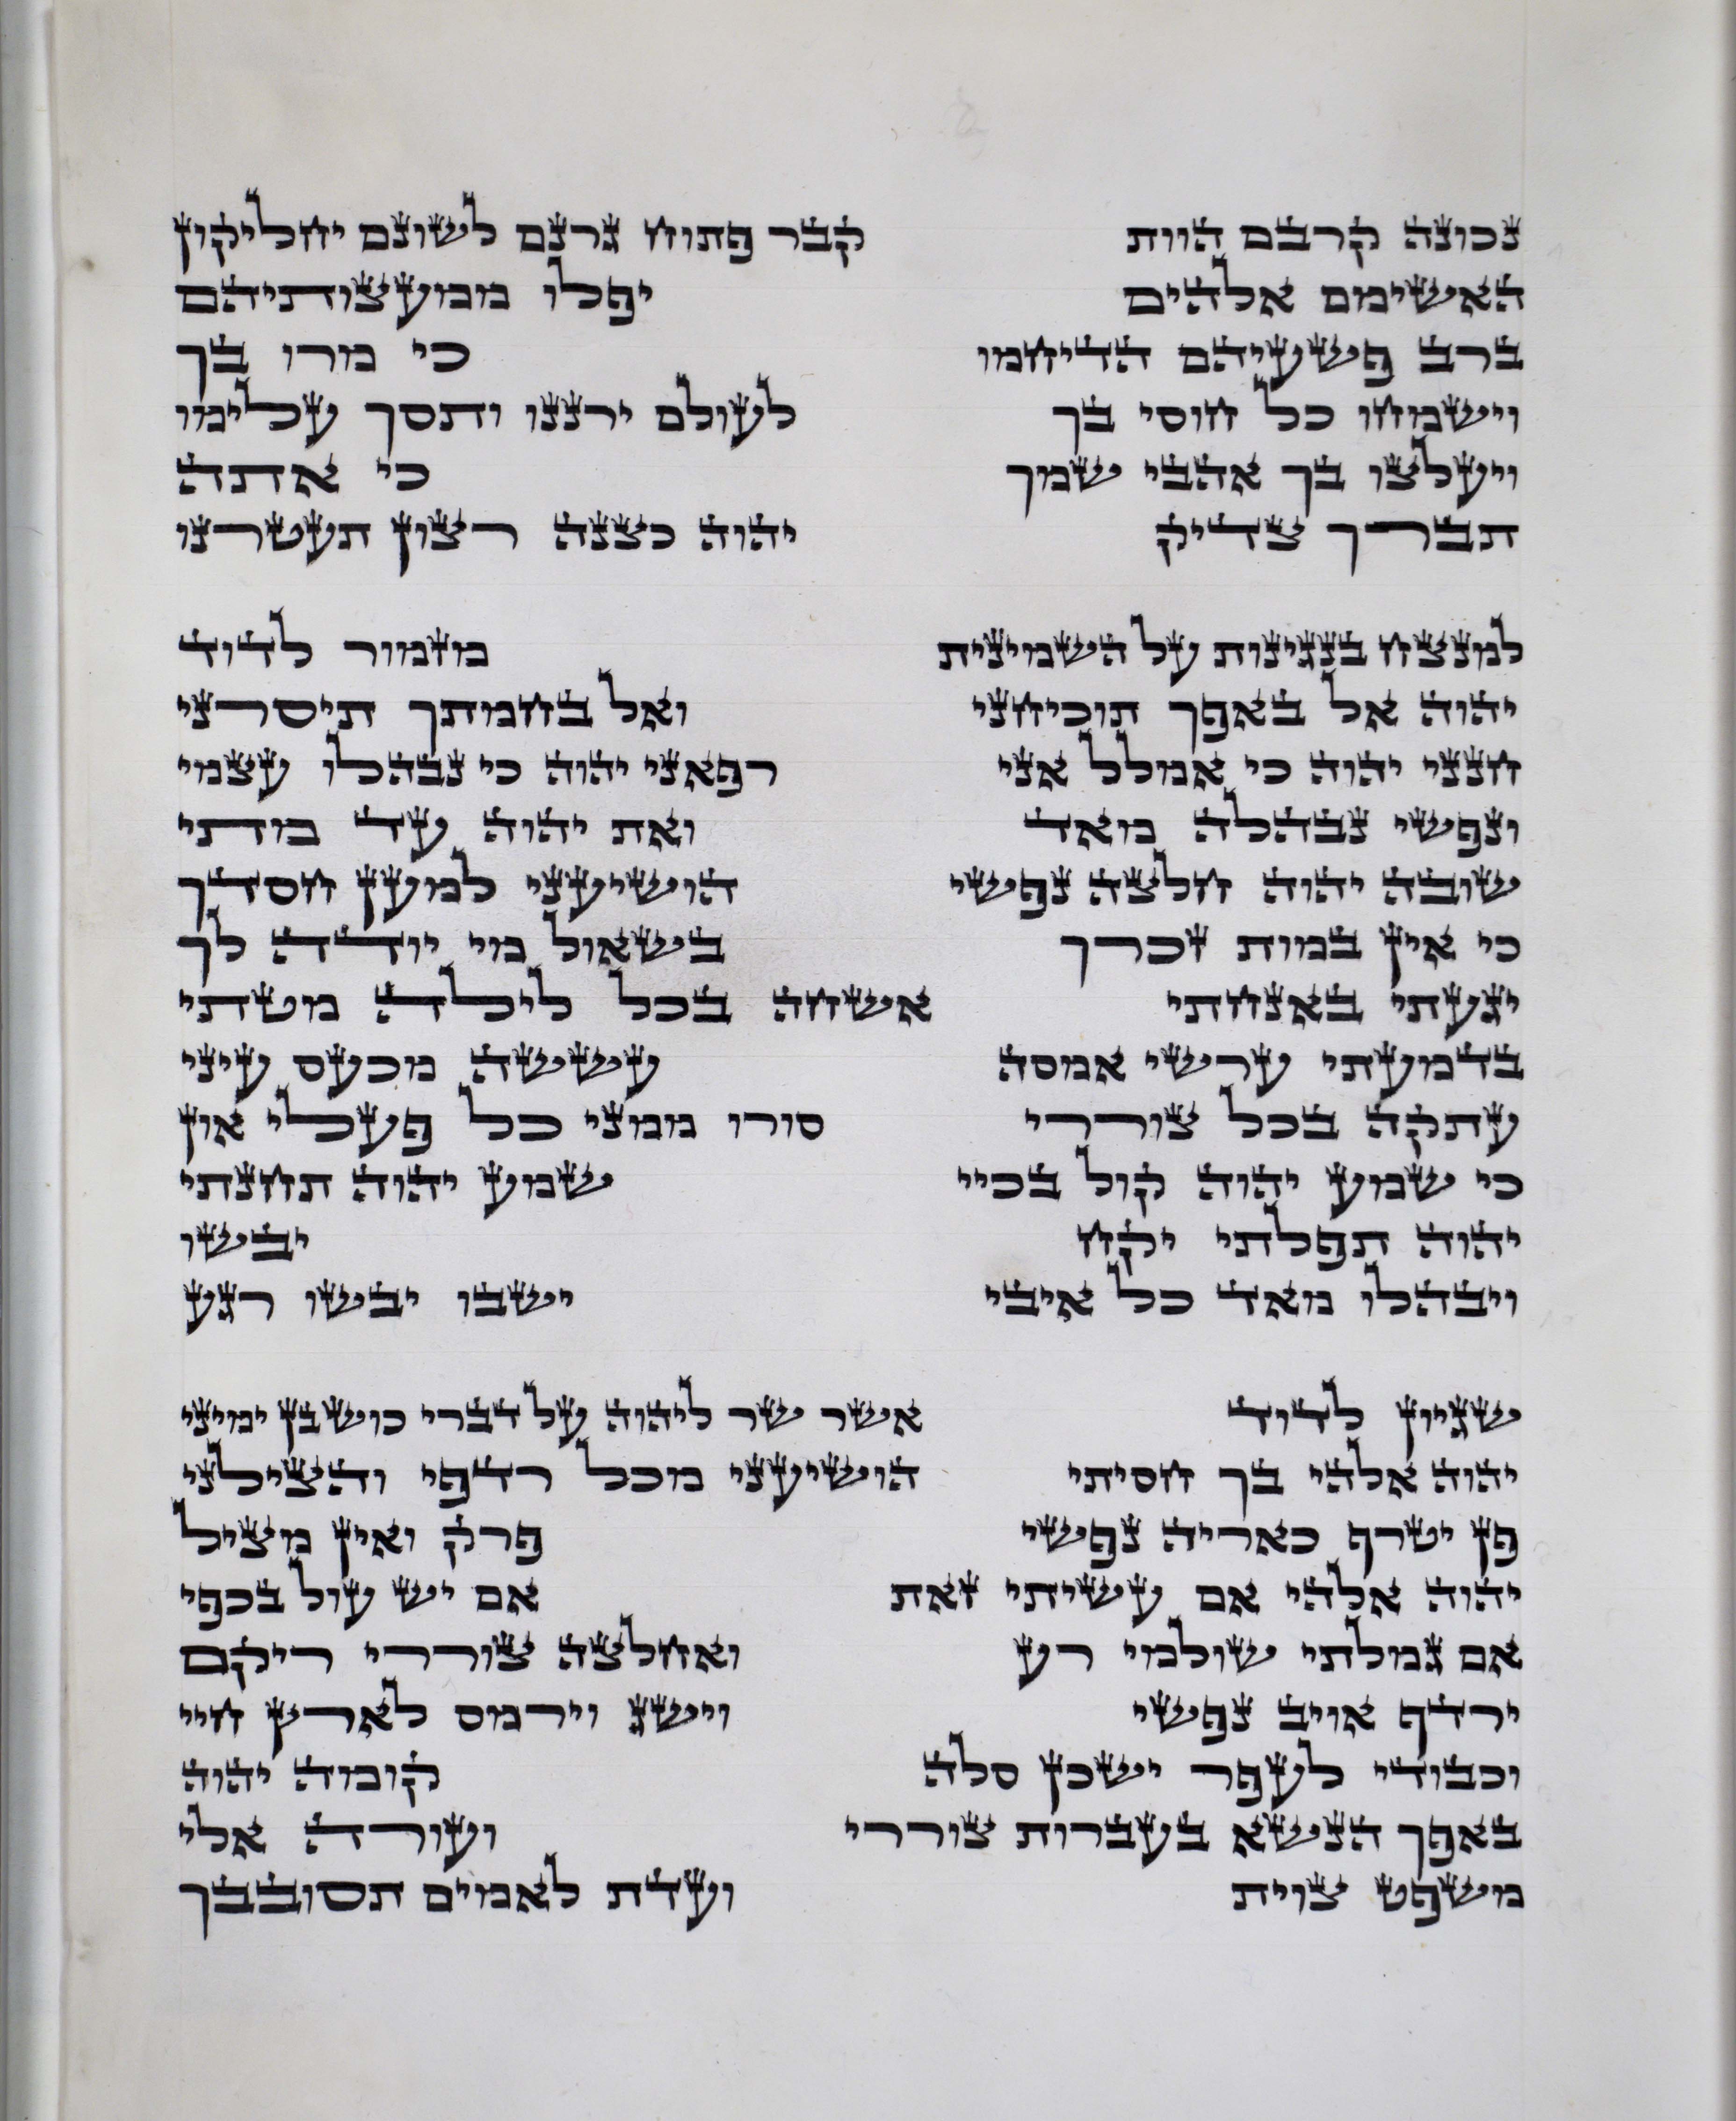 נכונה קרבם הוות קבר פתוח גרנם לשונם יחליקון
האשימם אלהים יפלו ממועצותיהם
ברב פשעיהם הדיחמו כי מרו בך
וישמחו כל חוסי בך לעולם ירננו ותסך עלימו
ויעלצו בך אהבי שמך כי אתה
תברך צדיק יהוה כצנה רצון תעטרנו
למנצח בנגינות על השמינית מזמור לדוד
יהוה אל באפך תוכיחני ואל בחמתך תיסרני
חנני יהוה כי אמלל אני רפאני יהוה כי נבהלו עצמי
ונפשי נבהלה מאד ואת יהוה עד מתי
שובה יהוה חלצה נפשי הושיעני למען חסדך
כי אין במות זכרך בשאול מי יודה לך
יגעתי באנחתי אשחה בכל לילה מטתי
בדמעתי ערשי אמסה עששה מכעס עיני
עתקה בכל צוררי סורו ממני כל פעלי און
כי שמע יהוה קול בכיי שמע יהוה תחנתי
יהוה תפלתי יקח יבשו
ויבהלו מאד כל איבי ישבו יבשו רגע
שגיון לדוד אשר שר ליהוה על דברי כוש בן ימיני
יהוה אלהי בך חסיתי הושיעני מכל רדפי והצילני
פן יטרף כאריה נפשי פרק ואין מציל
יהוה אלהי אם עשיתי זאת אם יש עול בכפי
אם גמלתי שולמי רע ואחלצה צוררי ריקם
ירדף אויב נפשי וישג וירמס לארץ חיי
וכבודי לעפר ישכן סלה קומה יהוה
באפך הנשא בעברות צוררי ועורה אלי
משפט צוית ועדת לאמים תסובבך